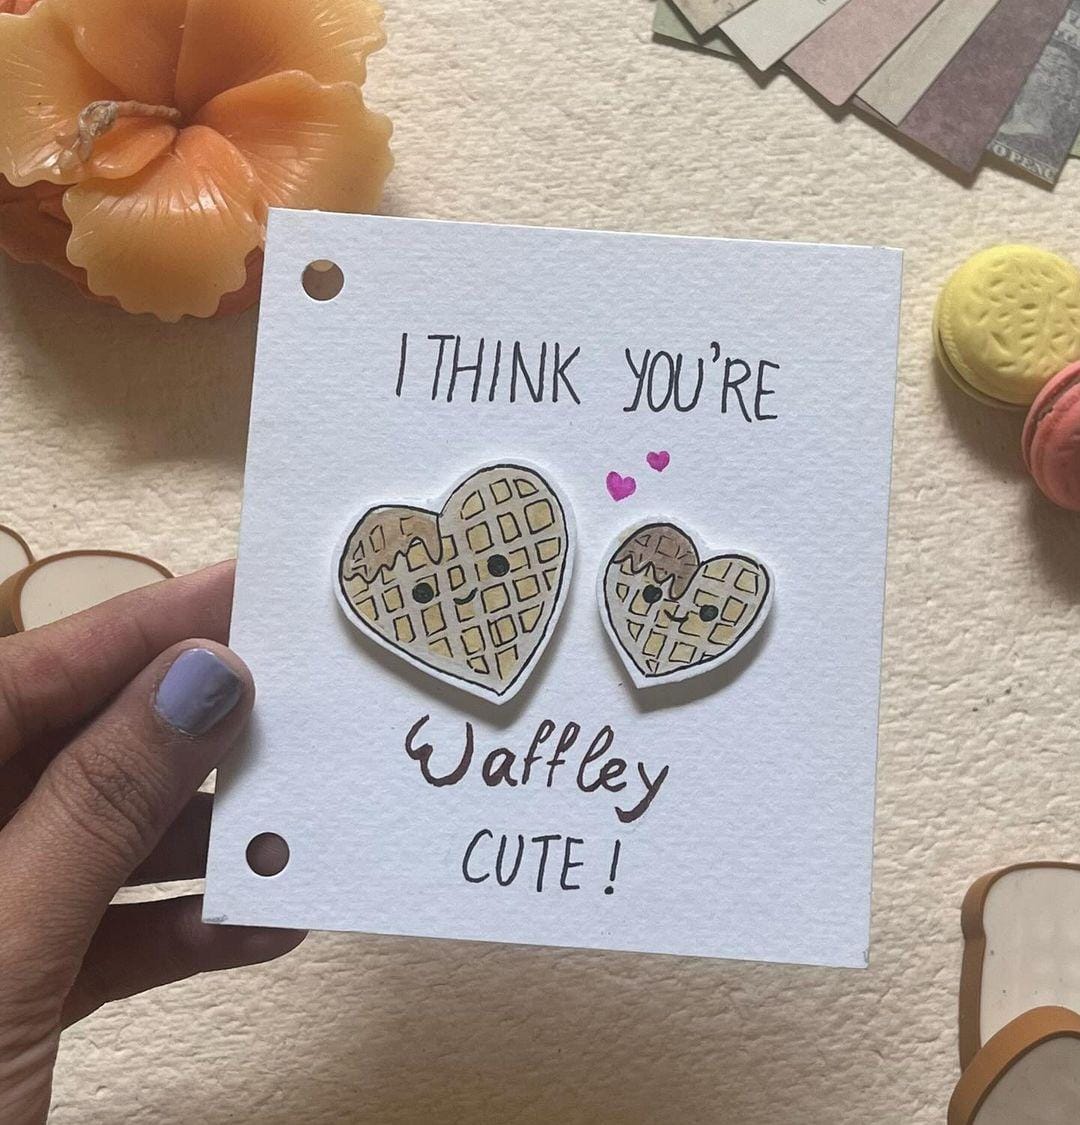 I THINK YOU'RE
Waffley
CUTE!